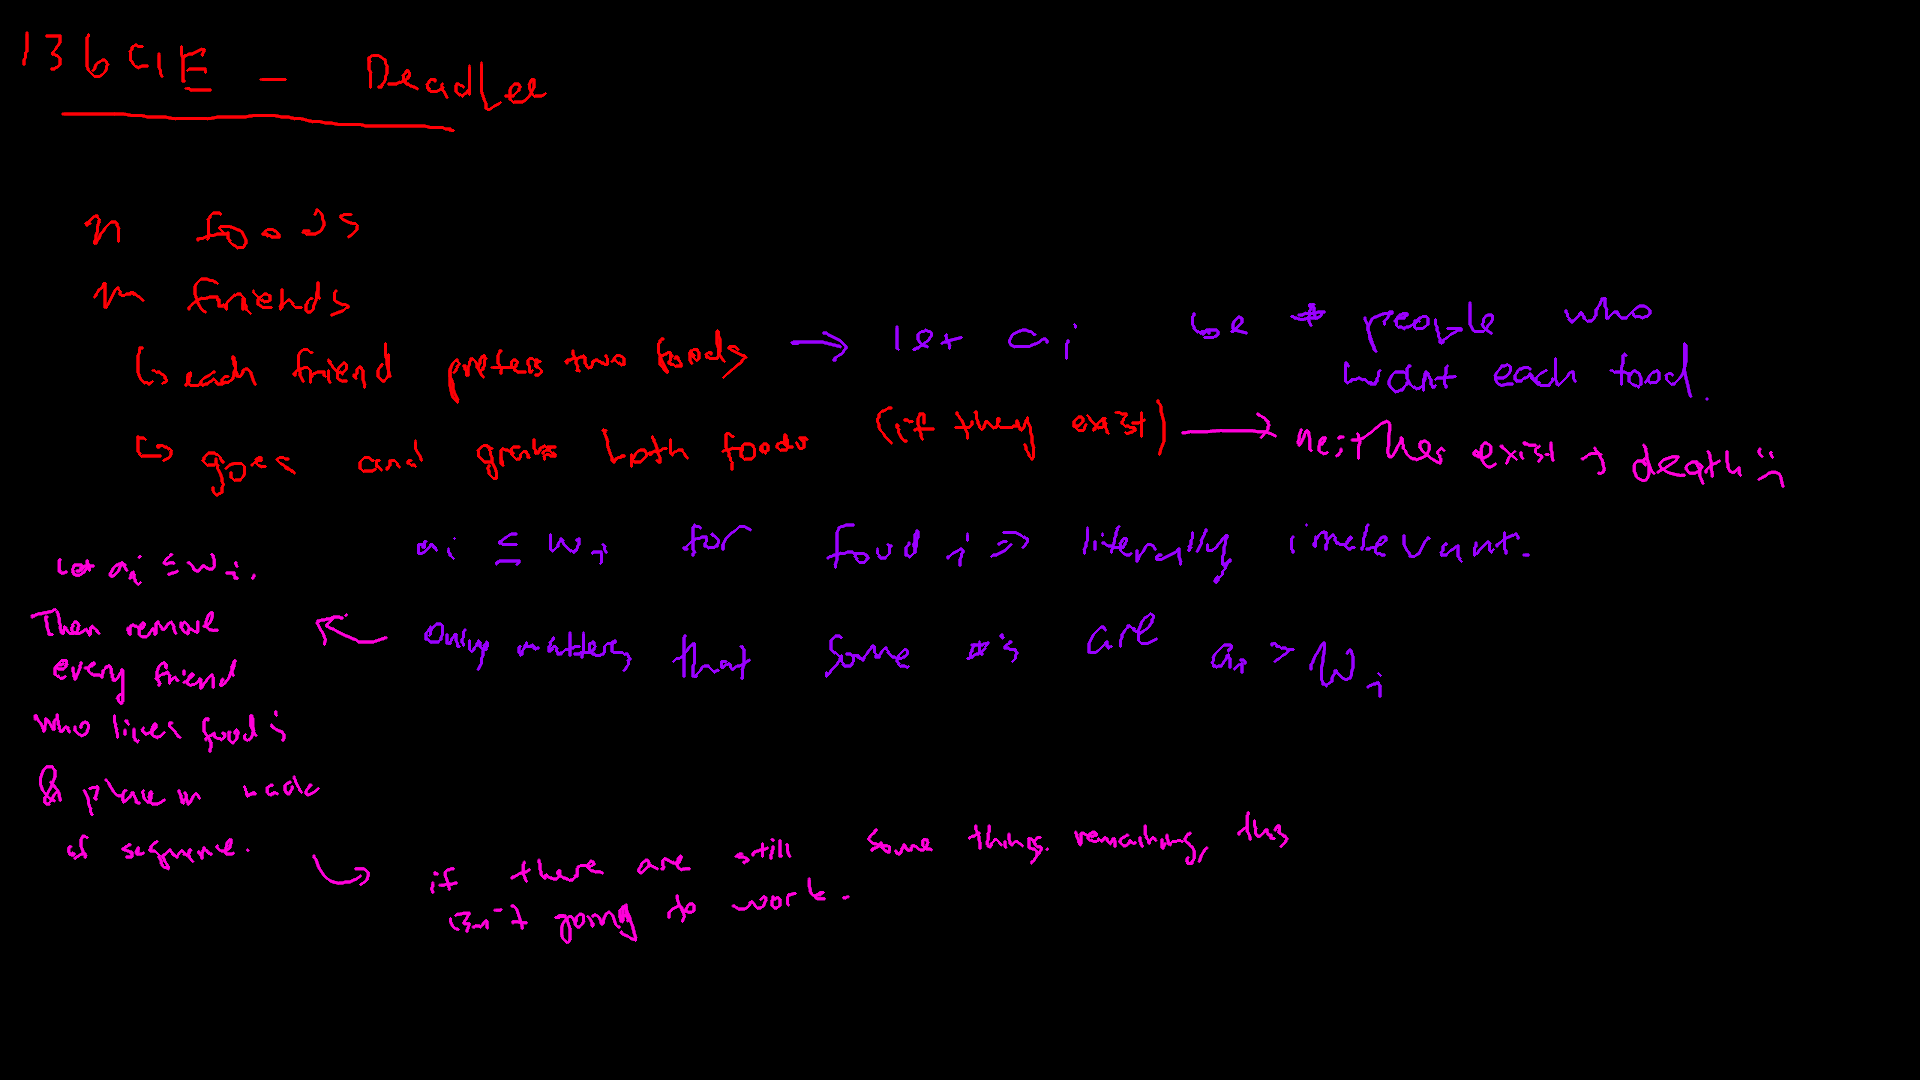 1361E - DeadLee
n foods
m friends
↳ each friend prefers two foods → let ai be # people who
want each food.
↳ goes and grabs both foods (if they exist) → neither exist → death ;
ai ≤ wi for food i → literally irrelevant.
Let ai ≤ wi.
Then remove ← only matters that some #'s are ai > wi
every friend
who likes food i
& place in back
of sequence.
↳ if there are still some things remaining, this
isn't going to work.